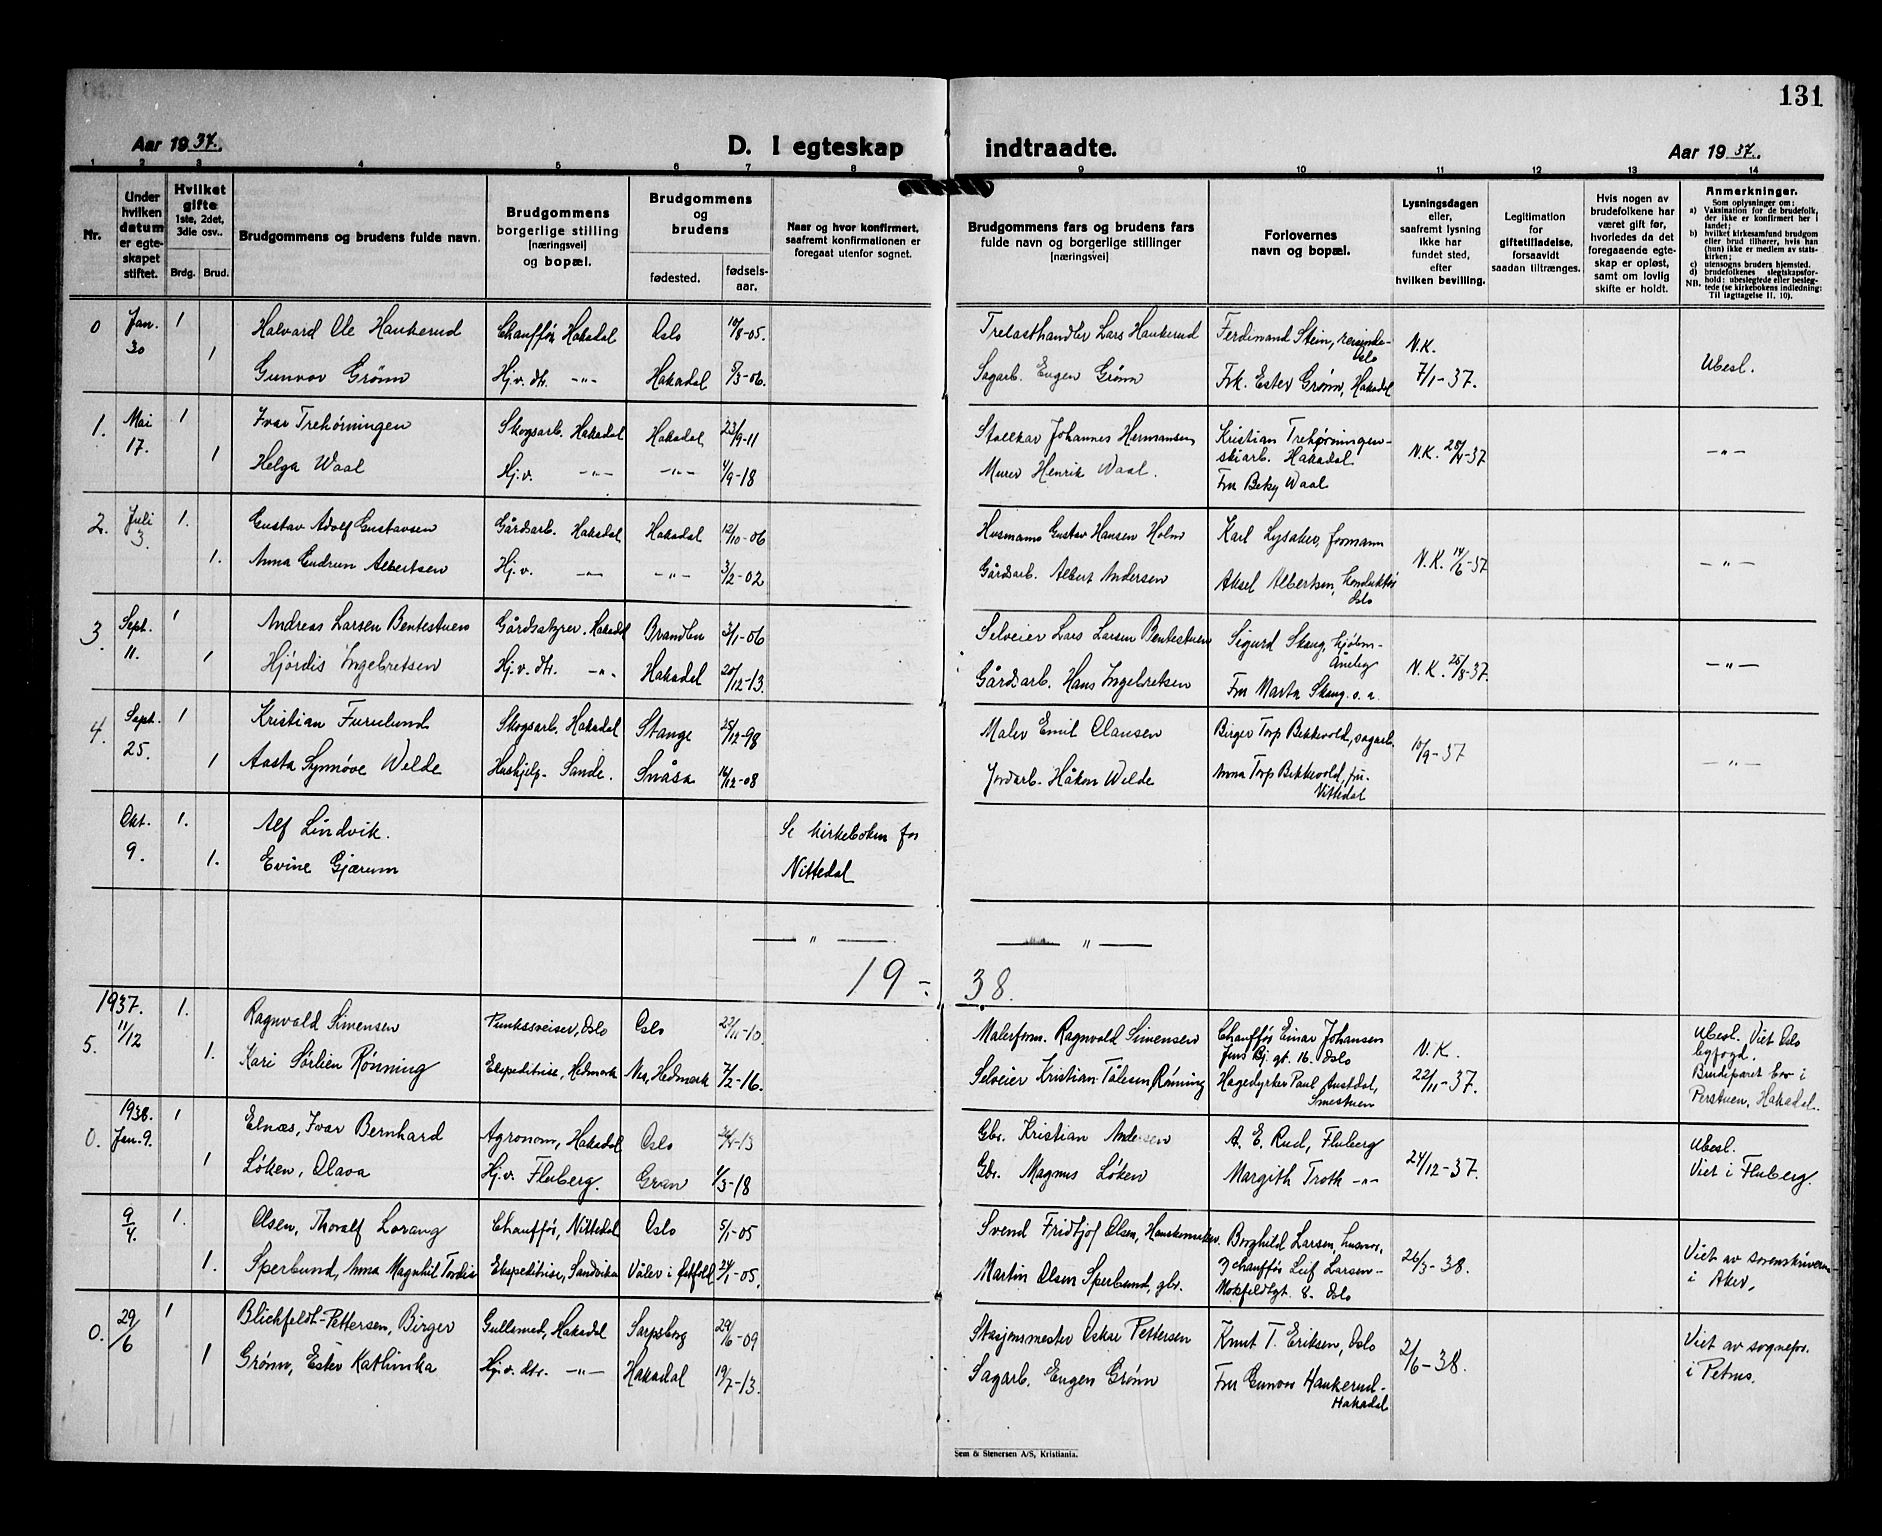 131
Aar 1937.
D. I egteskap indtraadte.
Aar 1937.
1 2 3 4 5 6 7 8 9 10 11 12 13 14
Nr.
Under hvilken datum er egteskapet stiftet.
Hvilket gifte 1ste, 2det, 3die osv..
Brdg. Brud.
Brudgommens og brudens fulde navn.
Brudgommens borgerlige stilling [næringsvei] og bopæl.
Brudgommens og brudens
fødested. fødselsaar.
Naar og hvor konfirmert, saafremt konfirmationen er foregaat utenfor sognet.
Brudgommens fars og brudens fars fulde navn og borgerlige stillinger [næringsvei]
Forlovernes navn og bopæl.
Lysningsdagen eller, saafremt lysning ikke har fundet sted, efter hvilken bevilling.
Legitimation for giftetilladelse, forsaavidt saadan tiltrænges.
Hvis nogen av brudefolkene har været gift før, hvorledes da det foregaaende egteskap er opløst, samt om lovlig skifte er holdt.
Anmerkninger.
Som oplysninger om:
a) Vaksination for de brudefolk, der ikke er konfirmert her i landet;
b) hvilket kirkesamfund brudgom eller brud tilhører, hvis han (hun) ikke er medlem av statskirken;
c) utensogns bruders hjemsted.
d) brudefolkenes slegtskapsforhold: ubeslegtede eller beslegtede (se kirkebokens indledning: Til iagttagelse II. 10).
NB.
0 Jan. 30 1 Halvard Ole Haukerud Chauffør Hakadal Oslo 10/8-05. Trelasthandler Lars Haukerud Ferdinand Stein, reisende Oslo N.K.
1 Gunvor Grønn Hj.v. dtr. -"- Hakadal 5/3-06. Sagarb. Eugen Grønn Frk. Ester Grønn, Hakadal 7/1-37. Ubesl.
1. Mai 17. 1 Ivar Trehørningen Skogsarb. Hakadal Hakadal 23/9-11 Stallkar Johannes Hermansen Kristian Trehørningen skiarb. Hakadal N.K. 28/4-37 -"-
1 Helga Waal Hj.v. -"- -"- 4/9-18 Murer Henrik Waal. Fru Betsy Waal
2. Juli 3. 1. Gustav Adolf Gustavsen Gårdsarb. Hakadal Hakadal 12/10-06 Husmann Gustav Hansen Holm Karl Lysaker, formann N.K. 14/6-37 -"-
1. Anna Gudrun Albertsen Hj.v. -"- -"- 3/2-02 Gårdsarb. Albert Andersen Aksel Albertsen, konduktør Oslo
3. Sept. 11. 1 Andreas Larsen Bentestuen Gårdsstyrer, Hakadal Brandbu 3/1-06 Selveier Lars Larsen Bentestuen Sigurd Skaug, Åneby N.K. 25/8-37. -"-
1 Hjørdis Ingebretsen Hj.v. dtr. -"- Hakadal 20/12-13. Gårdsarb. Hans Ingebretsen Fru Marta Skaug. s. a.
4. Sept. 25. 1 Kristian Furulund Skogsarb. Hakadal Stange 25/12-98 Maler Emil Olausen Birger Torp Bekkevold, sagarb. 10/9-37 -"-
1 Aasta Synnøve Welde Hushjelp. Sande. Snåsa 16/12-08 Jordarb. Håkon Welde Anna Torp Bekkevold, fru Nittedal
Okt. 9. 1. Alf Lindvik. Se kirkeboken for
1. Evine Gjærum Nittedal
— " — — " —
19 - 38.
5. 1937. 11/12 1. Ragnvald Simensen Punktsveiser, Oslo Oslo 22/11-10. Malerform. Ragnvald Simensen Chauffør Einar Johansen Jens Bj. gt. 16. Oslo N.K. Ubesl. Viet Oslo byfogd.
1. Kari Sørlien Rønning Ekspeditrise, Hedmark Nes, Hedmark 7/2-16. Selveier Kristian Tålesen Rønning Hagedyrker Paul Austdal, Smestuen 22/11-37. Brudeparet bor i Perstuen, Hakadal.
0. 1938. Jan. 9. 1 Elnæs, Ivar Bernhard Agronom, Hakadal Oslo 24/4-13 Gbr. Kristian Andersen A. E. Rud, Fluberg 24/12-37. Ubesl.
1 Løken, Olava Hj.v. Fluberg. Gran 4/3-18 Gbr. Magnus Løken Margith Troth -"- Viet i Fluberg.
9/4. 1. Olsen, Thoralf Lorang Chauffør, Nittedal Oslo 5/1-05 Svend Fridtjof Olsen, Borghild Larsen, husmor, 26/3-38. Viet av sorenskriveren i Aker.
1. Sperbund, Anna Magnhil Tordis Ekspeditrise, Sandvika Våler i Østfold 24/1-05. Martin Olsen Sperbund, gbr. chauffør Leif Larsen Motzfeldtgt. 8. Oslo
0. 29/6 1 Blichfeldt-Pettersen, Birger Gullsmed, Hakadal Sarpsborg 29/6-09 Stasjonsmester Oskar Pettersen Knut T. Eriksen, Oslo 2/6-38. Viet av sognepr. i Petrus.
1 Grønn, Ester Kathinka Hj.v. dtr. -"- Hakadal 19/7-13. Sagarb. Eugen Grønn Fru Gunvor Haukerud Hakadal
Sem & Stenersen A/S, Kristiania.